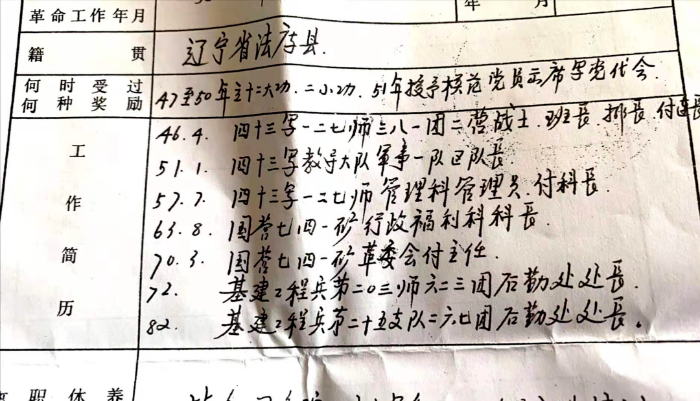 革命工作年月
年 月
籍贯 辽宁省法库县.
何时受过何种奖励 47至50年立十二大功.二小功.51年授予模范党员云席军党代会.
工作简历
46.4. 四十三军一二七师三八一团二营战士.班长.排长.付连长
51.1. 四十三军教导大队军事一队区队长.
57.7. 四十三军一二七师管理科管理员.付科长.
63.8. 国营七四一矿行政福利科科长.
70.3. 国营七四一矿革委会付主任.
72. 基建工程兵第二〇三师六二三团后勤处处长.
82. 基建工程兵第二十五支队二六七团后勤处处长。
职体养